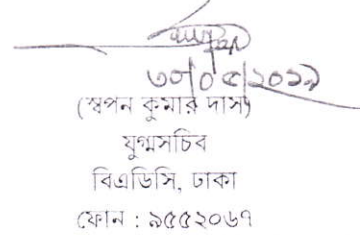 ৩০/০৫/২০১৯
(স্বপন কুমার দাস)
যুগ্মসচিব
বিএডিসি, ঢাকা
ফোন : ৯৫৫২০৬৭